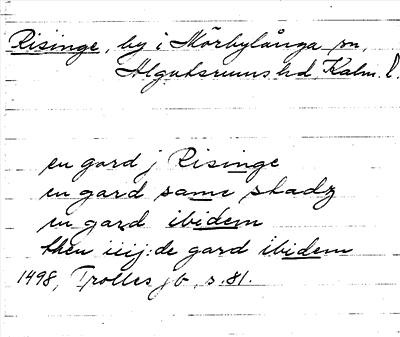 Risinge, by i Mörbylånga sn,
Algutsrums hd, Kalm. l.
en gard j Risinge
en gard same stadz
en gard ibidem
then iiij:de gard ibidem
1498, Trolles jb, s. 81.